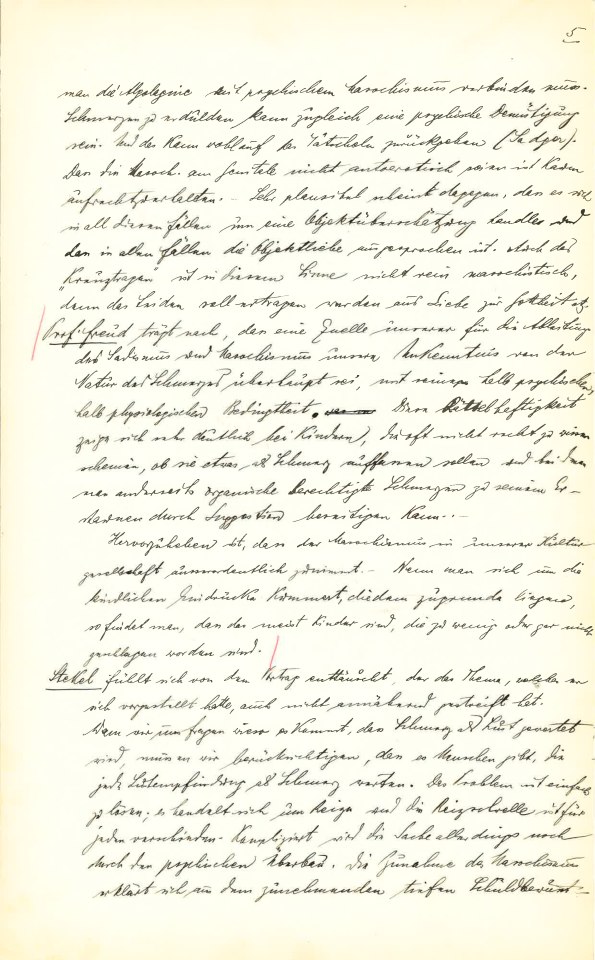 5
man die Algolagnie mit psychischem Masochismus verbinden muss.
Schmerzen zu erdulden kann zugleich eine psychische Demütigung
sein. Und das kann wohl auf das Tätscheln zurückgehen (Sadger).
Das die Masoch. am Genitale nicht autoerotisch seien ist kaum
aufrechtzuerhalten. – Sehr plausibel scheint dagegen, dass es sich
in all diesen Fällen um eine Objektüberschätzung handle und
dass in allen Fällen die Objektliebe ausgesprochen ist. Auch das
„Kreuztragen" ist in diesem Sinne nicht rein masochistisch,
denn das Leiden soll ertragen werden aus Liebe zur Gottheit etz.
Prof. Freud trägt nach, dass eine Quelle unserer für die Ableitung
des Sadismus und Masochismus unsere Unkenntnis von der
Natur des Schmerzes überhaupt sei, mit seiner halb psychischen,
halb physiologischen Bedingtheit. Diese Rätselhaftigkeit
zeige sich sehr deutlich bei Kindern, die oft nicht recht zu wissen
scheinen, ob sie etwas als Schmerz auffassen sollen und bei denen
man anderseits organische berechtigte Schmerzen zu seinem Er-
staunen durch Suggestion beseitigen kann. –
Hervorzuheben ist, dass der Masochismus in unserer Kultur
gesellschaft ausserordentlich zunimmt. – Wenn man sich um die
kindlichen Eindrücke kümmert, die dem zugrunde liegen,
so findet man, dass das meist Kinder sind, die zu wenig oder gar nicht
geschlagen worden sind.
Stekel fühlt sich von dem Vortrag enttäuscht, der das Thema, welches er
sich vorgestellt hatte, auch nicht annähernd gestreift hat.
Wenn wir uns fragen wieso es kommt, dass Schmerz als Lust gewertet
wird, müssen wir berücksichtigen, dass es Menschen gibt, die
jede Lustempfindung als Schmerz werten. Das Problem ist einfach
zu lösen: es handelt sich um Reize und die Reizschwelle ist für
jeden verschieden. Kompliziert wird die Sache allerdings noch
durch den psychischen Überbau. Die Zunahme des Masochismus
erklärt sich aus dem zunehmenden tiefen Schuldbewusst-